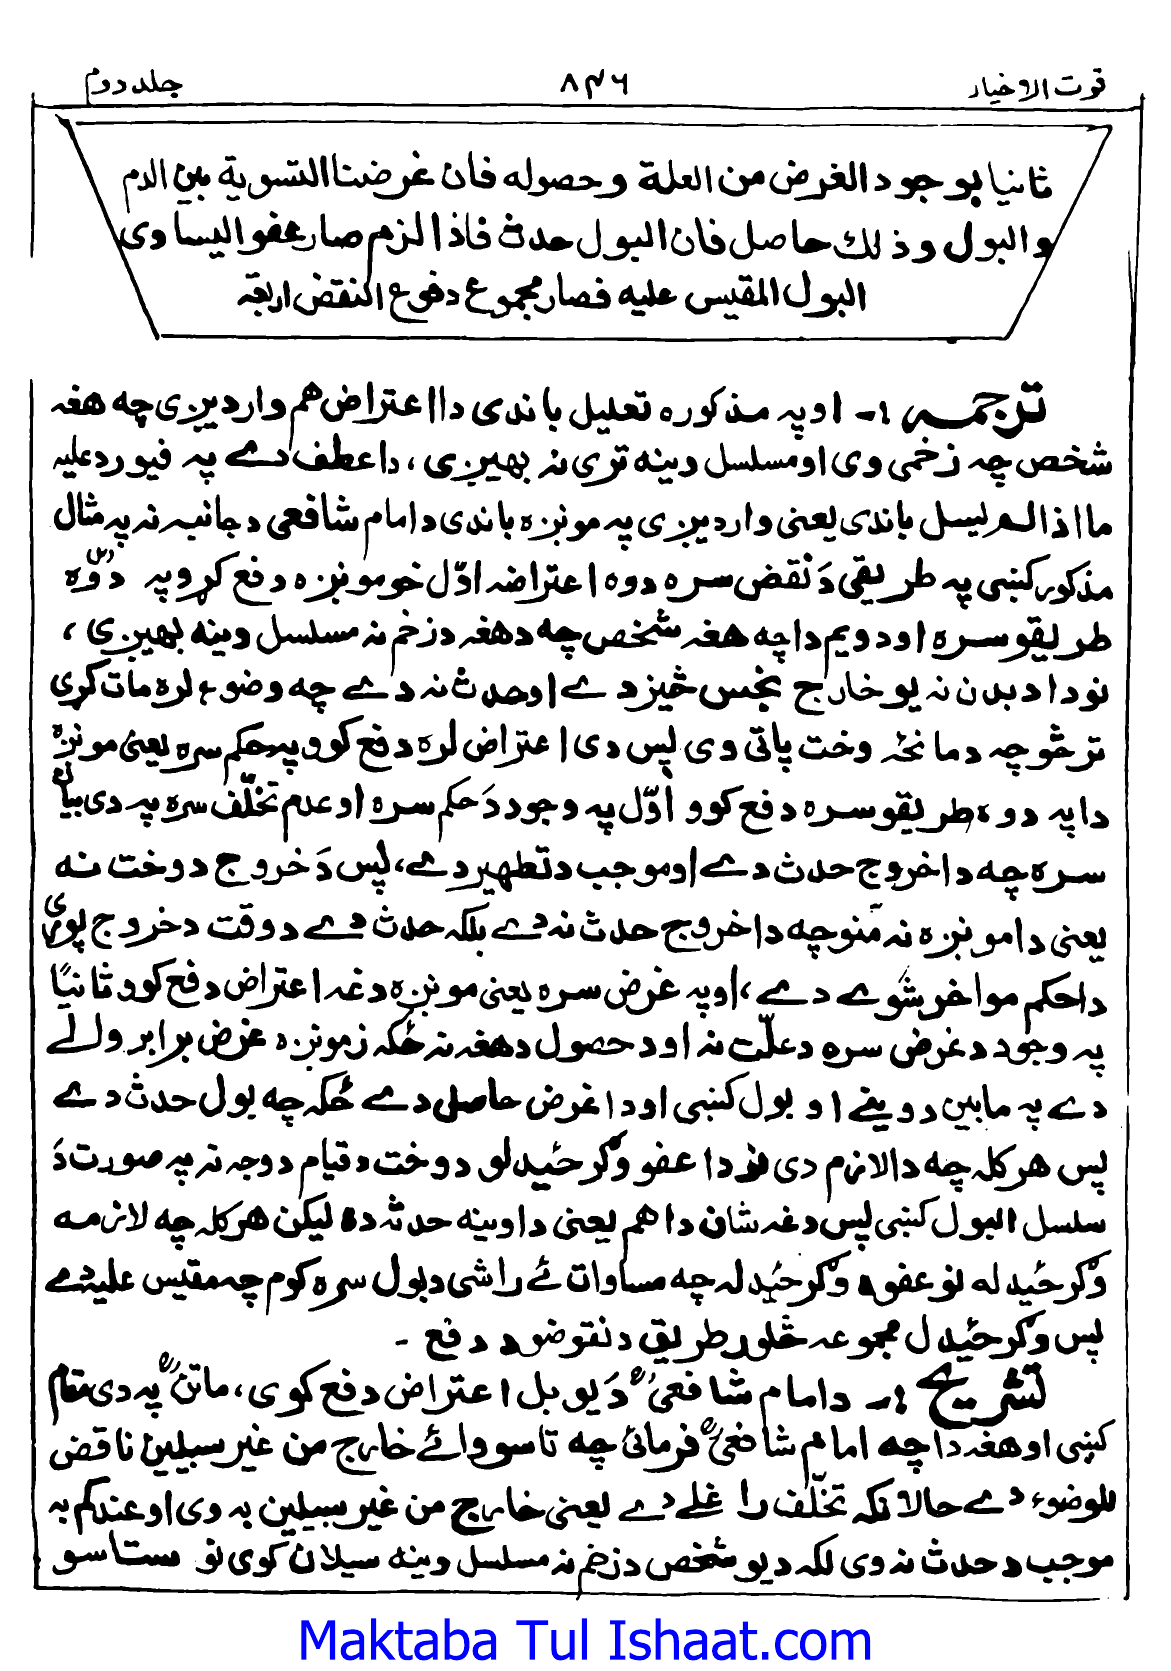 قوت الاخیار ۸۴۶ جلد دوم
ثانيا بوجود الغرض من العلة وحصوله فان غرضنا التسوية بين الدم
والبول وذلك حاصل فان البول حدث فاذا لزم صار عفوا ليساوى
البول المقيس عليه فصار مجموع دفوع النقض اربعة
ترجمہ :- او په مذکوره تعلیل باندی دا اعتراض هم واردیږی چه هغه
شخص چه زخمی وی او مسلسل وینه تری نه بهیږی، دا عطف دے په فیورد علیه
ما اذا لم یسل باندی یعنی واردیږی په مونږه باندی د امام شافعی د جانبه نه په مثال
مذکور کښی په طریقې دَ نقض سره دوه اعتراضه اوّل خو مونږه دفع کړو په دوو
طریقو سره او دویم دا چه هغه شخص چه دهغه د زخم نه مسلسل وینه بهیږی،
نو دا د بدن نه یو خارج نجس څیز دے او حدث نه دے چه وضوء لره مات کړی
ترڅو چه د مانځه وخت پاتی وی پس دی اعتراض لره دفع کوو په حکم سره یعنی مونږه
دا په دوه طریقو سره دفع کوو اوّل په وجود دَ حکم سره او عدم تخلّف سره په دی بیان
سره چه دا خروج حدث دے او موجب د تطهیر دے، پس دَ خروج د وخت نه
یعنی دا مونږه نه منو چه دا خروج حدث نه دے بلکه حدث دے د وقت د خروج پوری
دا حکم مؤخر شوے دے، او په غرض سره یعنی مونږه دغه اعتراض دفع کوو ثانیًا
په وجود د غرض سره د علّت نه او د حصول دهغه نه ځکه زمونږه غرض برابر والے
دے په مابین د وینے او بول کښی او دا غرض حاصل دے ځکه چه بول حدث دے
پس هرکله چه دا لازم دی نو دا عفو وګرځیدلو د وخت د قیام د وجه نه په صورت دَ
سلسل البول کښی پس دغه شان دا هم یعنی دا وینه حدث ده لیکن هرکله چه لازمه
وګرځیدله نو عفوه وګرځیدله چه مساوات ئے راشی د بول سره کوم چه مقیس علیه دے
پس وګرځیدل مجموعه څلور طریقې د نقوضو د دفع -
تشریح :- د امام شافعیؒ دَ یو بل اعتراض دفع کوی، ماتنؒ په دی مقام
کښی او هغه دا چه امام شافعیؒ فرمائی چه تاسو وائے خارج من غیر سبیلین ناقض
للوضوء دے حالانکه تخلّف راغلے دے یعنی خارج من غیر سبیلین به وی او عندکم به
موجب د حدث نه وی لکه د یو شخص د زخم نه مسلسل وینه سیلان کوی نو ستاسو
Maktaba Tul Ishaat.com